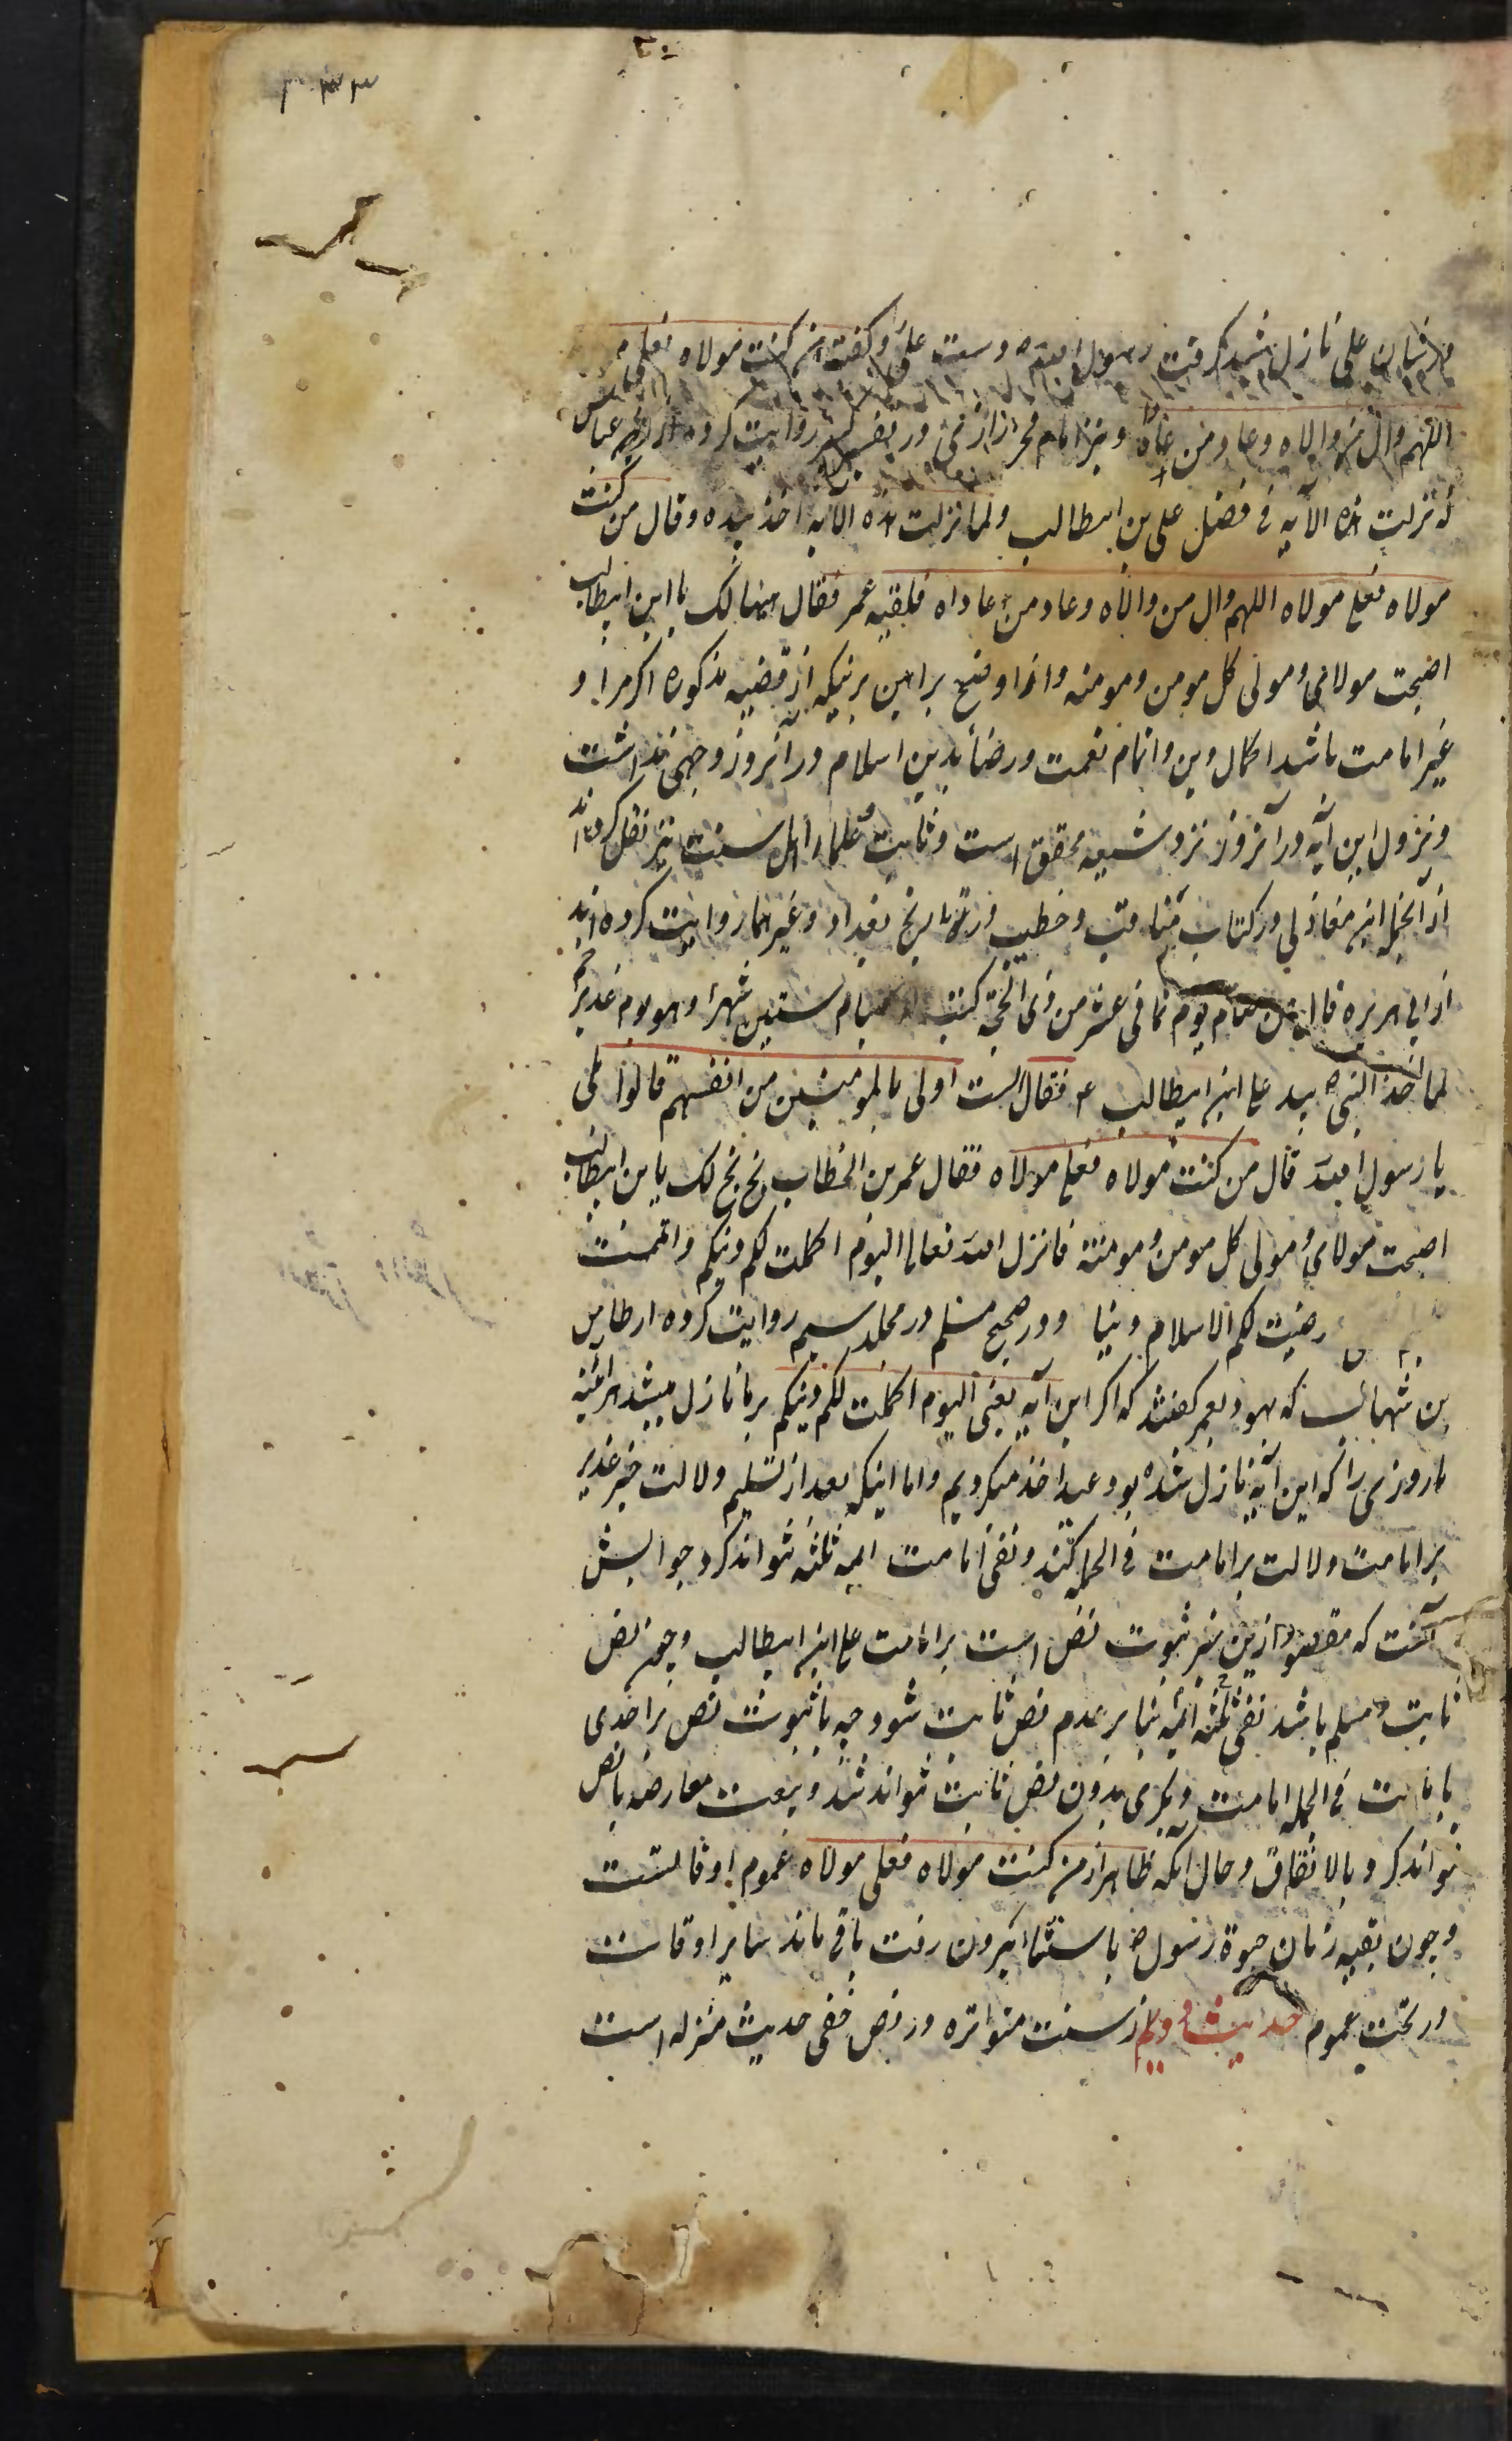 ۳۳۳
در شان علی نازل شد گرفت رسول الله ص دست علی و گفت من کنت مولاه فعلی م
اللهم وال من والاه وعاد من عاداه و نیز امام فخر رازی در تفسیر کبیر روایت کرده از ابن عباس
نزلت هذه الآیه فی فضل علی بن ابیطالب ولما نزلت هذه الآیه اخذ بیده وقال من کنت
مولاه فعلی مولاه اللهم وال من والاه وعاد من عاداه فلقیه عمر فقال هنیئا لک یا ابن ابیطالب
اصبحت مولای ومولی کل مومن ومومنه و از اوضح براهین برینکه از قضیه مذکوره اگر مراد
غیر امامت باشد اکمال دین و اتمام نعمت و رضا بدین اسلام در آنروز وجهی نداشت
و نزول این آیه در آنروز نزد شیعه محقق است و ثابت و علماء اهل سنت نیز نقل کرده‌اند
از آنجمله ابن مغازلی در کتاب مناقب و خطیب در تاریخ بغداد و غیرهما روایت کرده اند
از ابی هریره قال من صام یوم ثمانی عشر من ذی الحجه کتب له صیام ستین شهرا وهو یوم غدیر خم
لما اخذ النبی ص بید علی ابن ابیطالب ع فقال الست اولی بالمومنین من انفسهم قالوا بلی
یا رسول الله قال من کنت مولاه فعلی مولاه فقال عمر بن الخطاب بخ بخ لک یا بن ابیطالب
اصبحت مولای ومولی کل مومن ومومنة فانزل الله تعالی الیوم اکملت لکم دینکم واتممت
رضیت لکم الاسلام دینا و در صحیح مسلم در مجلد سیم روایت کرده از طارق
بن شهاب که یهود بعمر گفتند که اگر این آیه یعنی الیوم اکملت لکم دینکم بر ما نازل میشد هر آئینه
ما روزی را که این آیه نازل شده بود عید اخذ میکردیم و اما اینکه بعد از تسلیم دلالت خبر غدیر
بر امامت دلالت بر امامت فی الجمله کند و نفی امامت ائمه ثلثه نتواند کرد جوابش
آنست که مقصود ازین خبر ثبوت نص است بر امامت علی ابن ابیطالب و چون نص
ثابت و مسلم باشد نفی ثلثه ائمه بنا بر عدم نص ثابت شود چه با ثبوت نص بر احدی
بامامت فی الجمله امامت دیگری بدون نص ثابت نتواند شد و بیعت معارضه با نص
نتواند کرد بالاتفاق و حال آنکه ظاهر از من کنت مولاه فعلی مولاه عموم اوقاتست
و چون بقیه زمان حیوة رسول ص باستثنا بیرون رفت باقی ماند سایر اوقات
در تحت عموم حدیث دویم از سنت متواتره در نص خفی حدیث منزله است